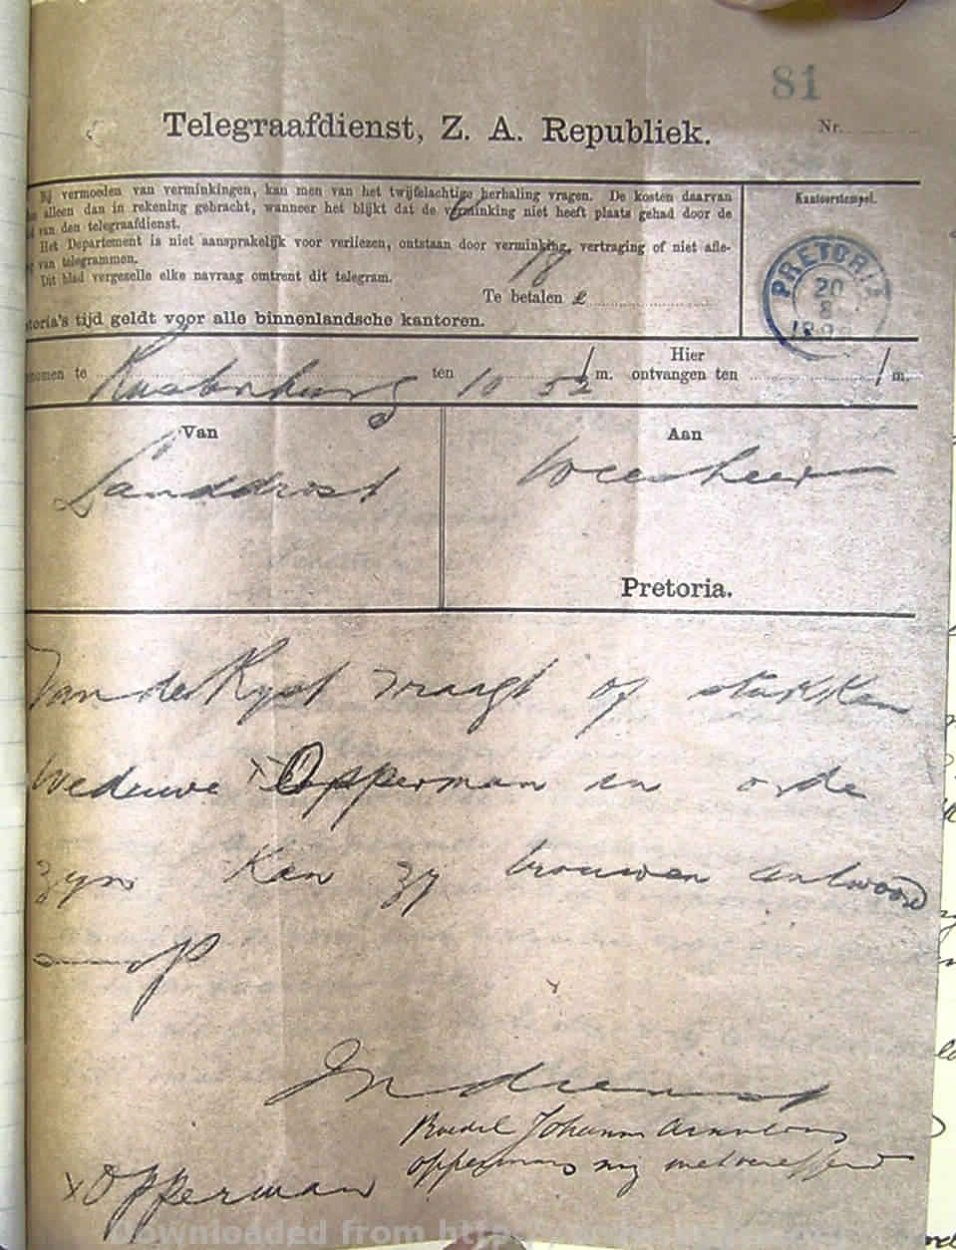 81
Telegraafdienst, Z. A. Republiek.
Nr.
Bij vermoeden van verminkingen, kan men van het twijfelachtige herhaling vragen. De kosten daarvan
alleen dan in rekening gebracht, wanneer het blijkt dat de verminking niet heeft plaats gehad door de
van den telegraafdienst.
Het Departement is niet aansprakelijk voor verliezen, ontstaan door verminking, vertraging of niet afle-
van telegrammen.
Dit blad vergezelle elke navraag omtrent dit telegram.
Te betalen £
toria's tijd geldt voor alle binnenlandsche kantoren.
Kantoorstempel.
PRETORIA
20
8
nomen te Rustenburg ten 10 52 m.
Hier
ontvangen ten m.
Van
Landdrost
Aan
Weesheer
Pretoria.
Van der Ryst vraagt of stukken
weduwe x Opperman in orde
zyn kan zy trouwen antwoord
op
In dienst
Boedel Johannes
oppermans my
x Opperman
Downloaded from http